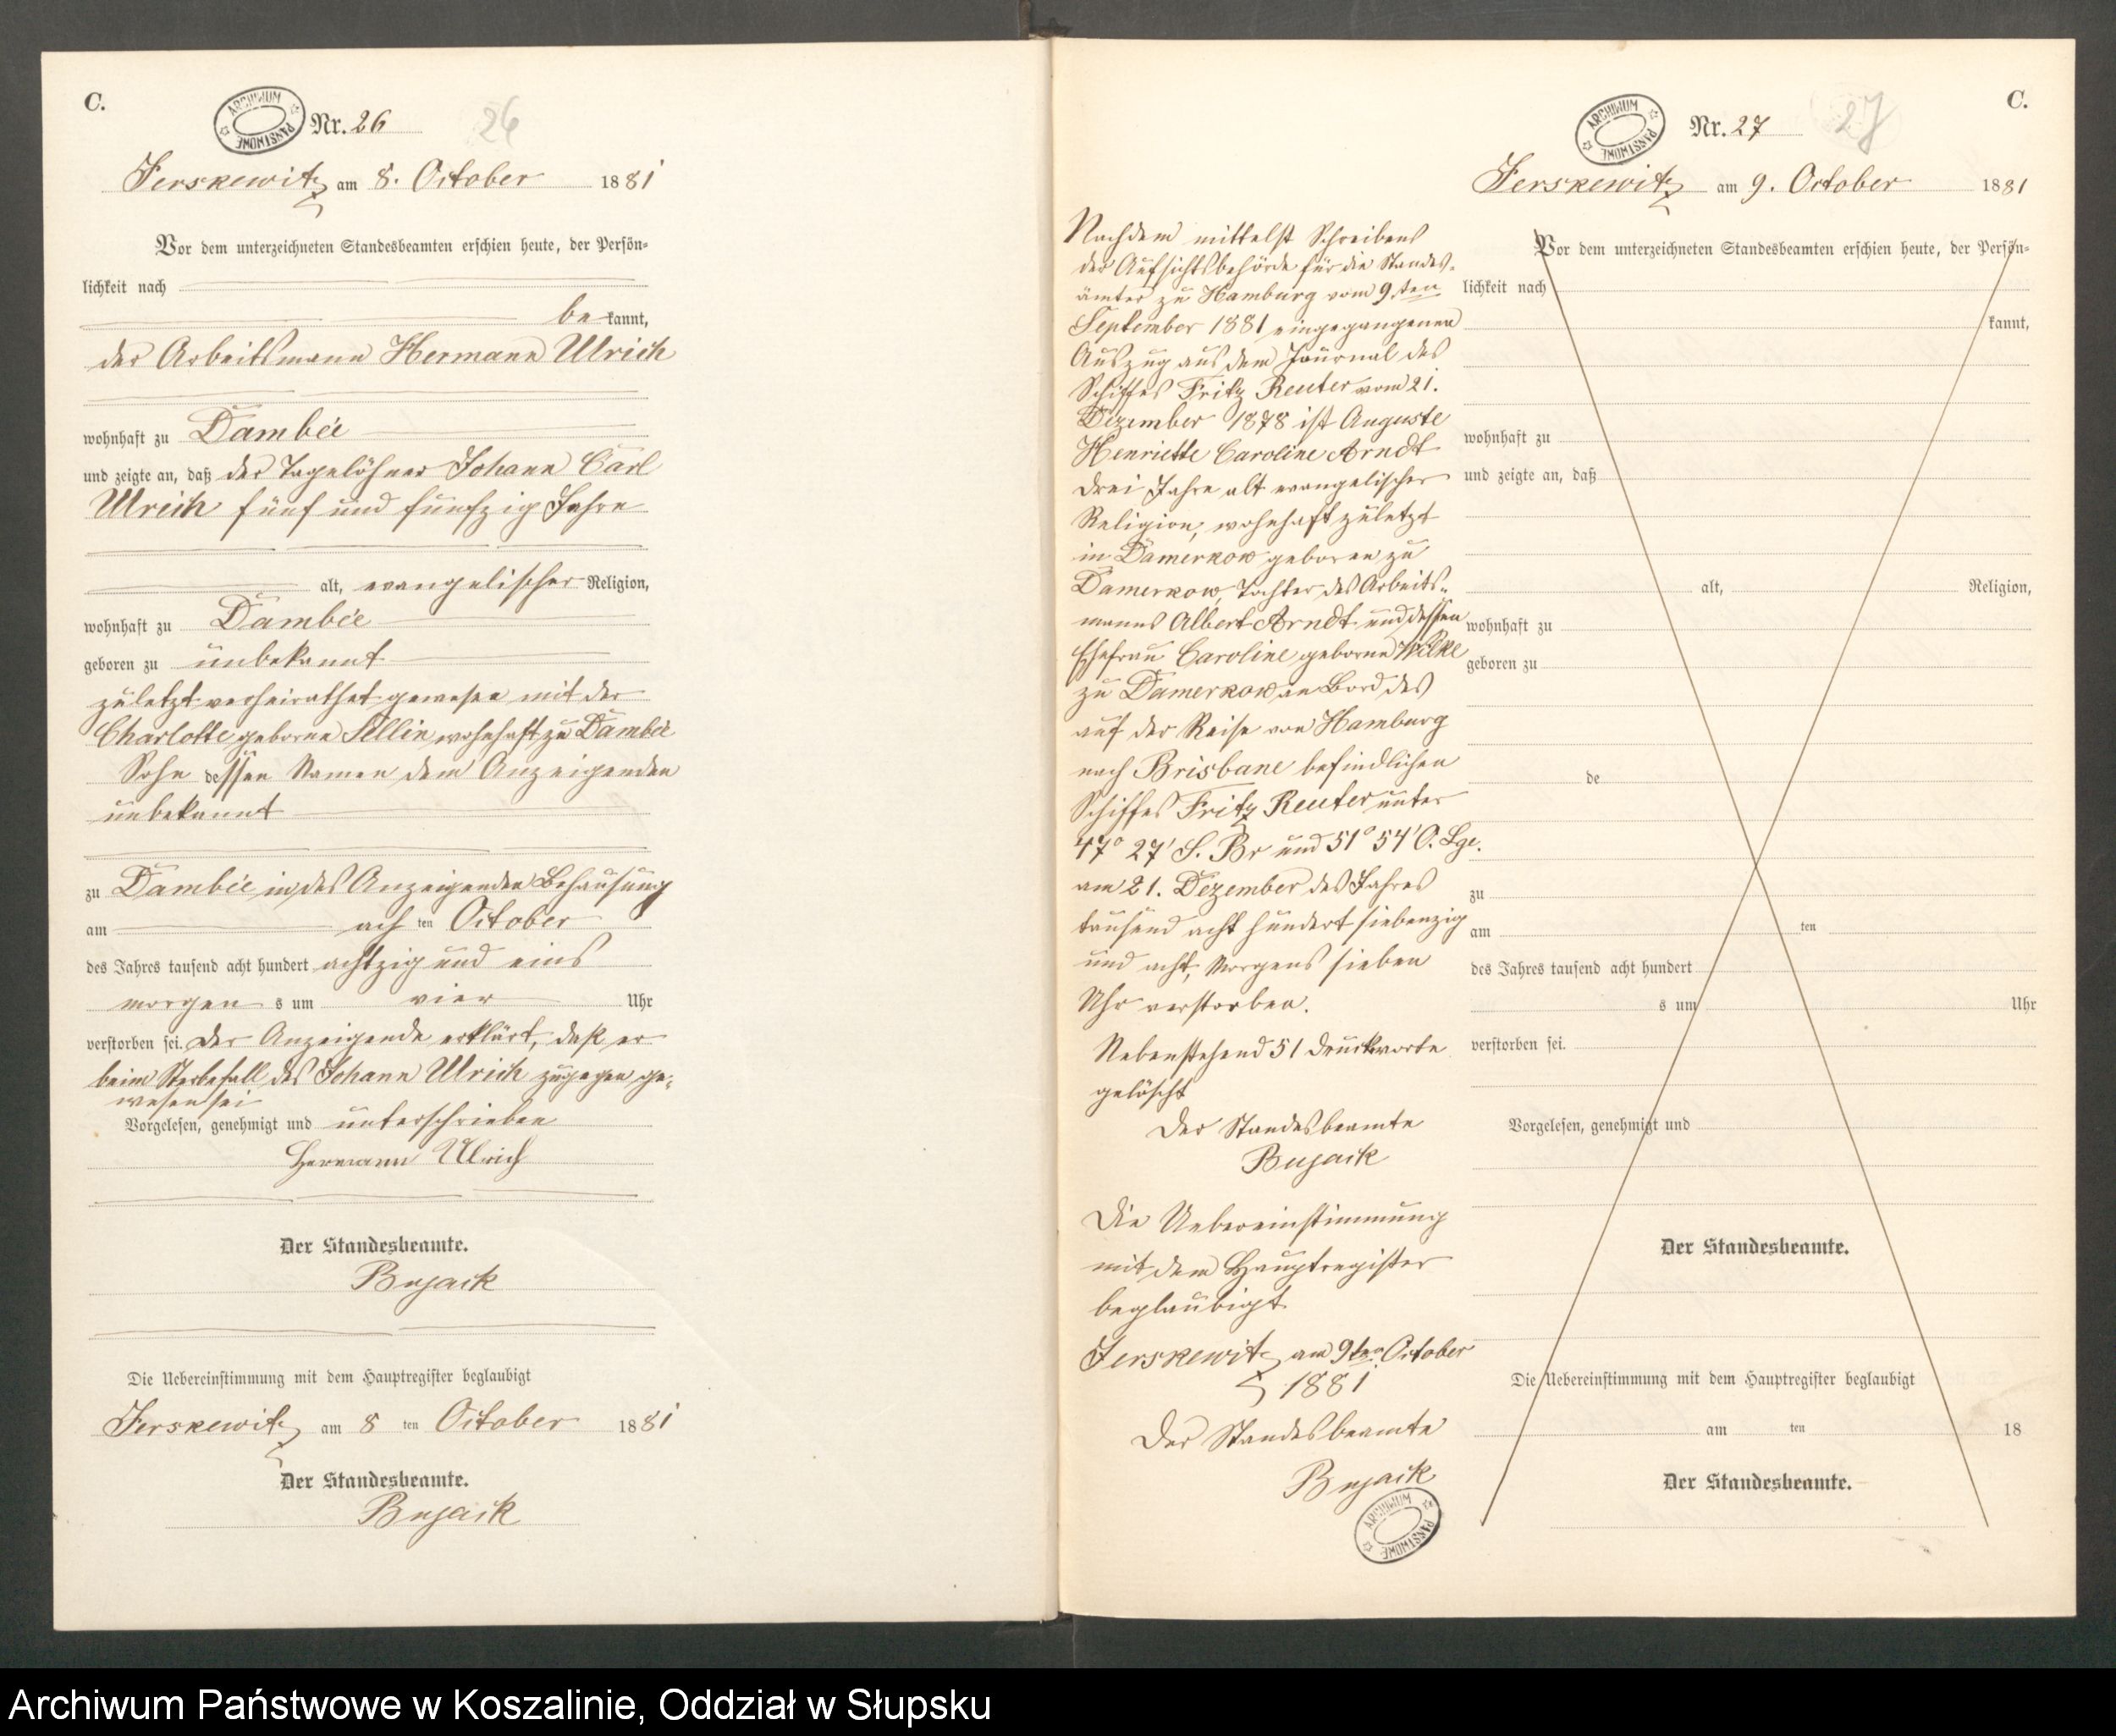 C.
ARCHIWUM PAŃSTWOWE
Nr. 26
26
Jerskewitz am 8. October 1881
Vor dem unterzeichneten Standesbeamten erschien heute, der Persön-
lichkeit nach
be kannt,
der Arbeitsmann Hermann Ulrich
wohnhaft zu Dambée
und zeigte an, daß der Tagelöhner Johann Carl
Ulrich fünf und funfzig Jahre
alt, evangelischer Religion,
wohnhaft zu Dambée
geboren zu unbekannt
zuletzt verheirathet gewesen mit der
Charlotte geborne Sellin, wohnhaft zu Dambée
Sohn dessen Namen dem Anzeigenden
unbekannt
zu Dambée in des Anzeigenden Behausung
am ach ten October
des Jahres tausend acht hundert achtzig und eins
morgen s um vier Uhr
verstorben sei. Der Anzeigende erklärt, daß er
beim Sterbefall des Johann Ulrich zugegen ge-
wesen sei
Vorgelesen, genehmigt und unterschrieben
Hermann Ulrich
Der Standesbeamte.
Bujack
Die Uebereinstimmung mit dem Hauptregister beglaubigt
Jerskewitz am 8 ten October 1881
Der Standesbeamte.
Bujack
C.
ARCHIWUM PAŃSTWOWE
Nr. 27
27
Jerskewitz am 9. October 1881
Nachdem mittelst Schreibens
der Aufsichtsbehörde für die Standes-
ämter zu Hamburg vom 9ten
September 1881 eingegangenen
Auszug aus dem Journal des
Schiffes Fritz Reuter vom 21.
Dezember 1878 ist Auguste
Henriette Caroline Arndt
drei Jahre alt evangelischer
Religion, wohnhaft zuletzt
in Damerkow geboren zu
Damerkow, Tochter des Arbeits-
manns Albert Arndt und dessen
Ehefrau Caroline geborne Wilke
zu Damerkow an Bord des
auf der Reise von Hamburg
nach Brisbane befindlichen
Schiffes Fritz Reuter unter
47° 27' S. Br und 51° 54' O. Lge.
am 21. Dezember des Jahres
tausend acht hundert siebenzig
und acht, Morgens sieben
Uhr verstorben.
Nebenstehend 51 Druckworte
gelöscht
Der Standesbeamte
Bujack
Die Uebereinstimmung
mit dem Hauptregister
beglaubigt
Jerskewitz am 9ten October
1881
Der Standesbeamte
Bujack
ARCHIWUM PAŃSTWOWE
Vor dem unterzeichneten Standesbeamten erschien heute, der Persön-
lichkeit nach
kannt,
wohnhaft zu
und zeigte an, daß
alt, Religion,
wohnhaft zu
geboren zu
de
zu
am ten
des Jahres tausend acht hundert
s um Uhr
verstorben sei.
Vorgelesen, genehmigt und
Der Standesbeamte.
Die Uebereinstimmung mit dem Hauptregister beglaubigt
am ten 18
Der Standesbeamte.
Archiwum Państwowe w Koszalinie, Oddział w Słupsku